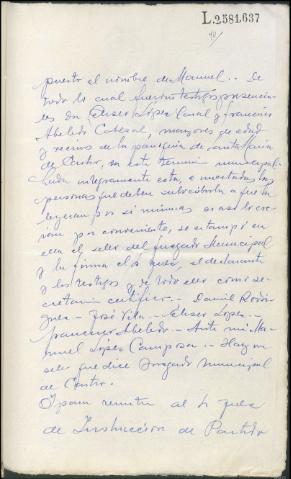 L.2581.637
40/
puesto el nombre de Manuel.. De
todo lo cual fueron testigos presencia
les don Eliser López Canal y Francisco
Abeledo Cabeza, mayores de edad
y vecinos de la parroquia de Santa María
de Castro, en este término municipal.
Leida integramente esta, e invitadas las
personas que deben subscribirla a que la
leyeran por si mismas si asi lo cre
yeran por conveniente, se estampó en
ella el sello del Juzgado Municipal
y la firma el Sr. Juez, el declarante
y los testigos, y de todo ello como se
cretario certifico.- Daniel Rodrí
guez - José Vila - Eliser López -
Francisco Abeledo - Ante mi Ma
nuel López Campos - Hay un
sello que dice Juzgado Municipal
de Castro.
Y para remitir al Sr Juez
de Instrucción de Partido